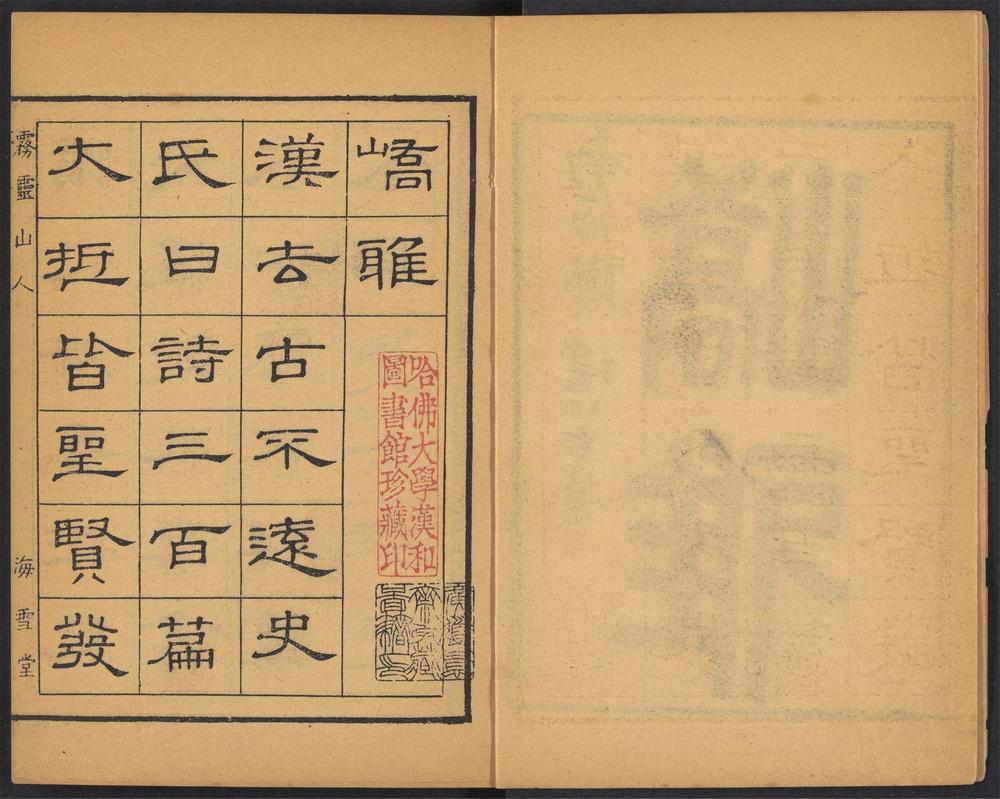 嶠雅
漢去古不遠史
氏曰詩三百篇
大抵皆聖賢發
霧靈山人
海雪堂
哈佛大學漢和
圖書館珍藏印